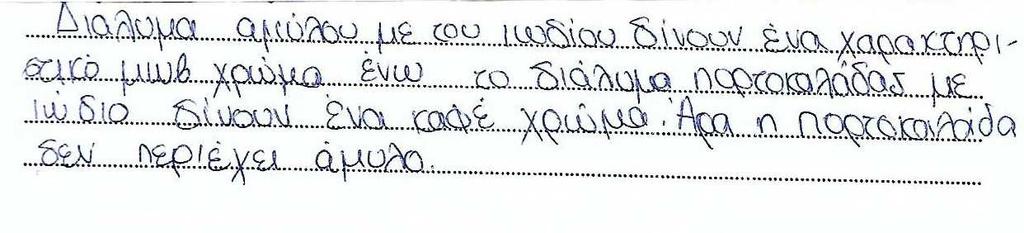 Διάλυμα αμύλου με του ιωδίου δίνουν ένα χαρακτηρι-
στικό μωβ χρώμα ένω το διάλυμα πορτοκαλάδας με
ιώδιο δίνουν ένα καφέ χρώμα. Άρα η πορτοκαλάδα
δεν περιέχει άμυλο.